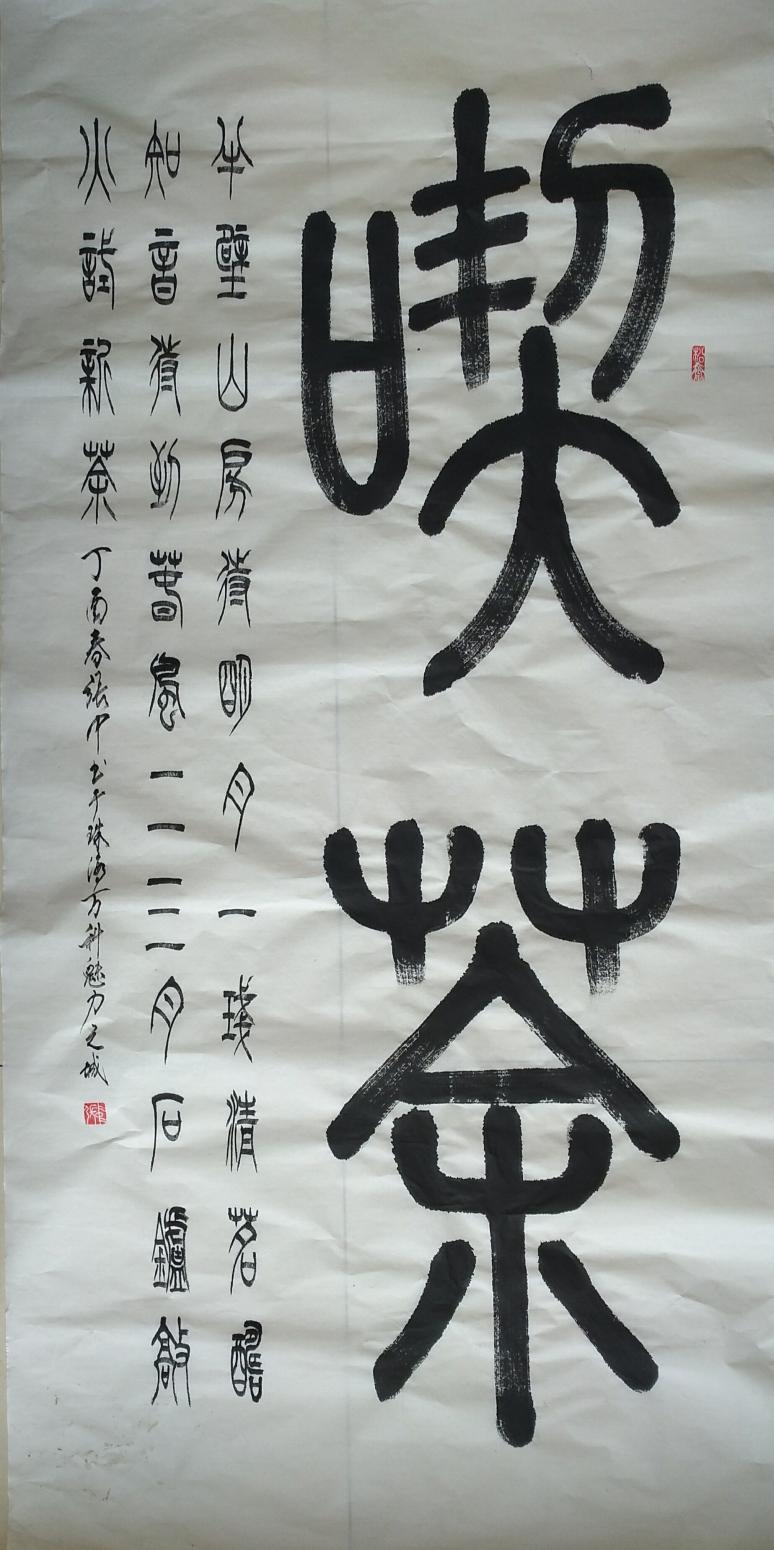 喫茶
半壁山房待明月一琖清茗酬
知音待到春風二三月石鑪敲
火試新茶
丁酉春張中書于珠海万科魅力之城